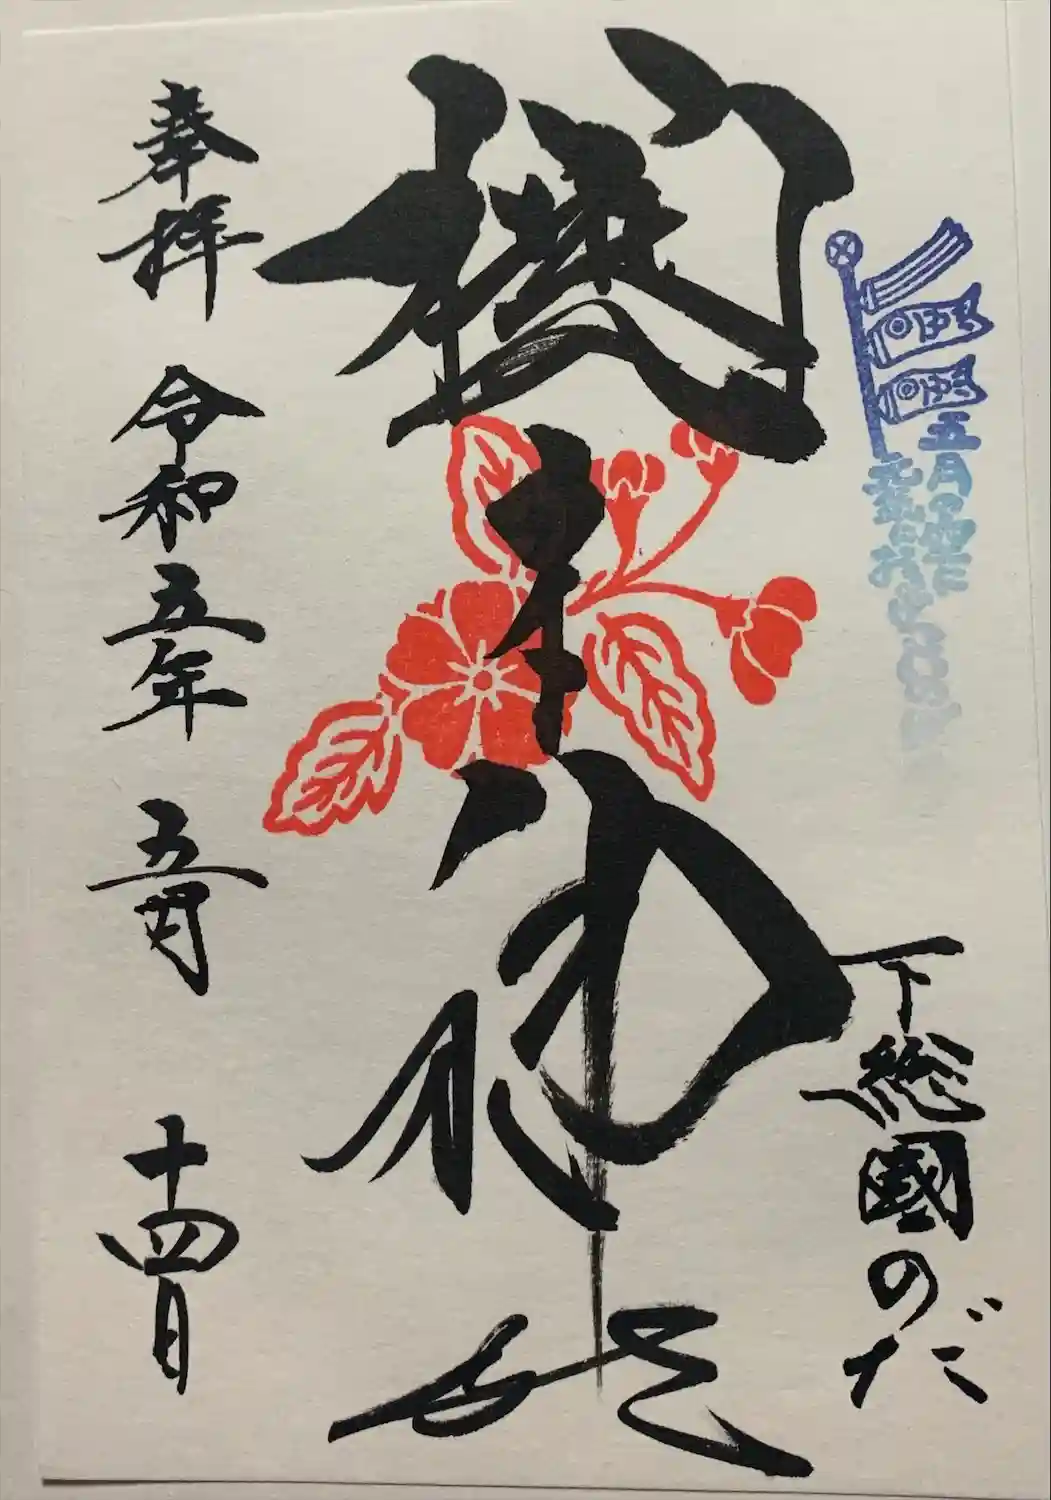 五月の空に
下総國のだ
櫻木神社
奉拝 令和五年 五月 十四日